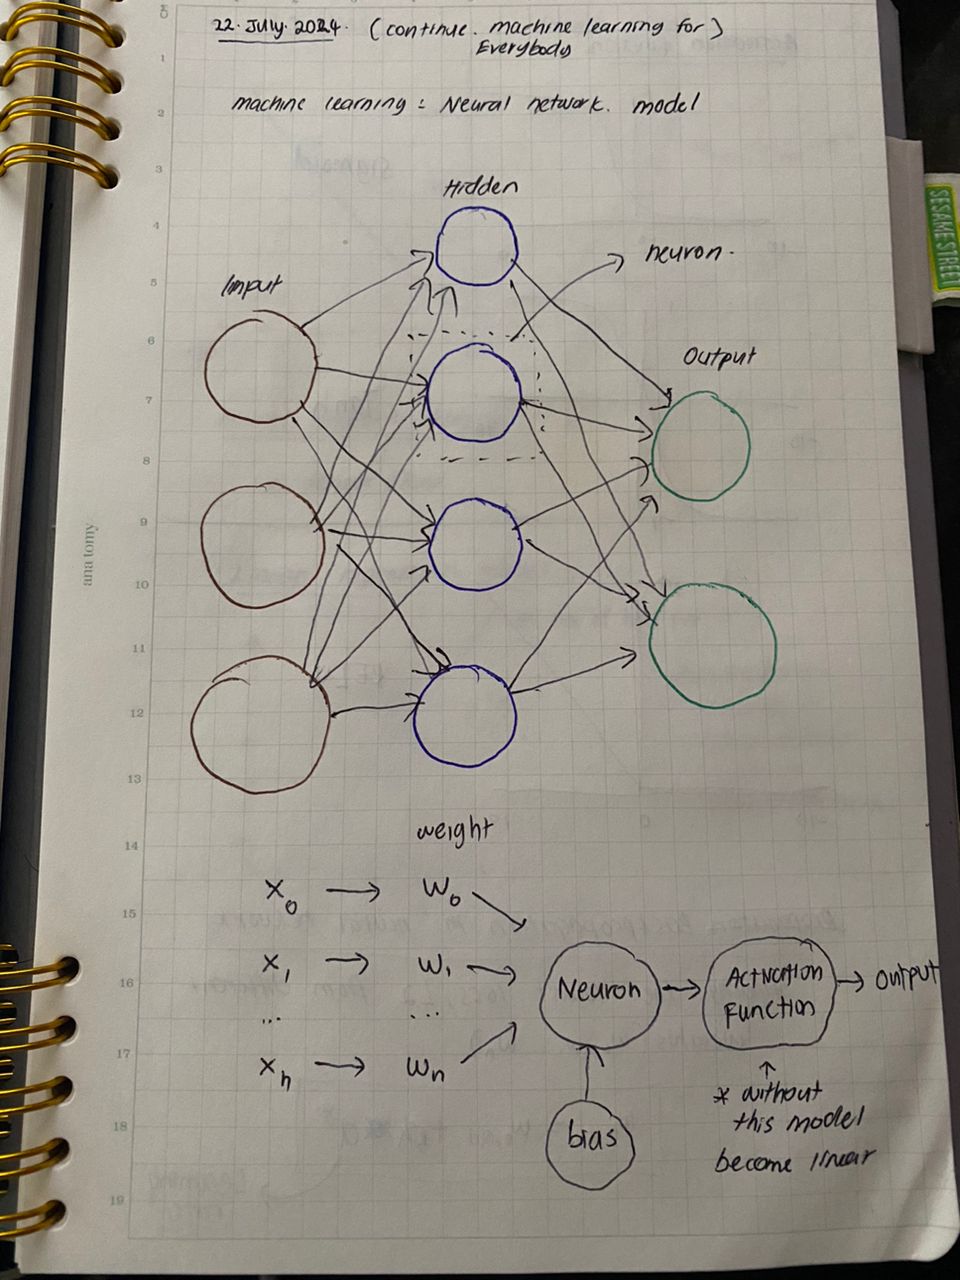 22. July. 2024. (continue. machine learning for)
Everybody
machine learning : Neural network. model
Hidden
neuron.
Input
Output
weight
x0 → w0
x1 → w1
... ...
xn → wn
Neuron → Activation Function → output
bias
* without
this model
become linear
anatomy
SESAME STREET
0
1
2
3
4
5
6
7
8
9
10
11
12
13
14
15
16
17
18
19